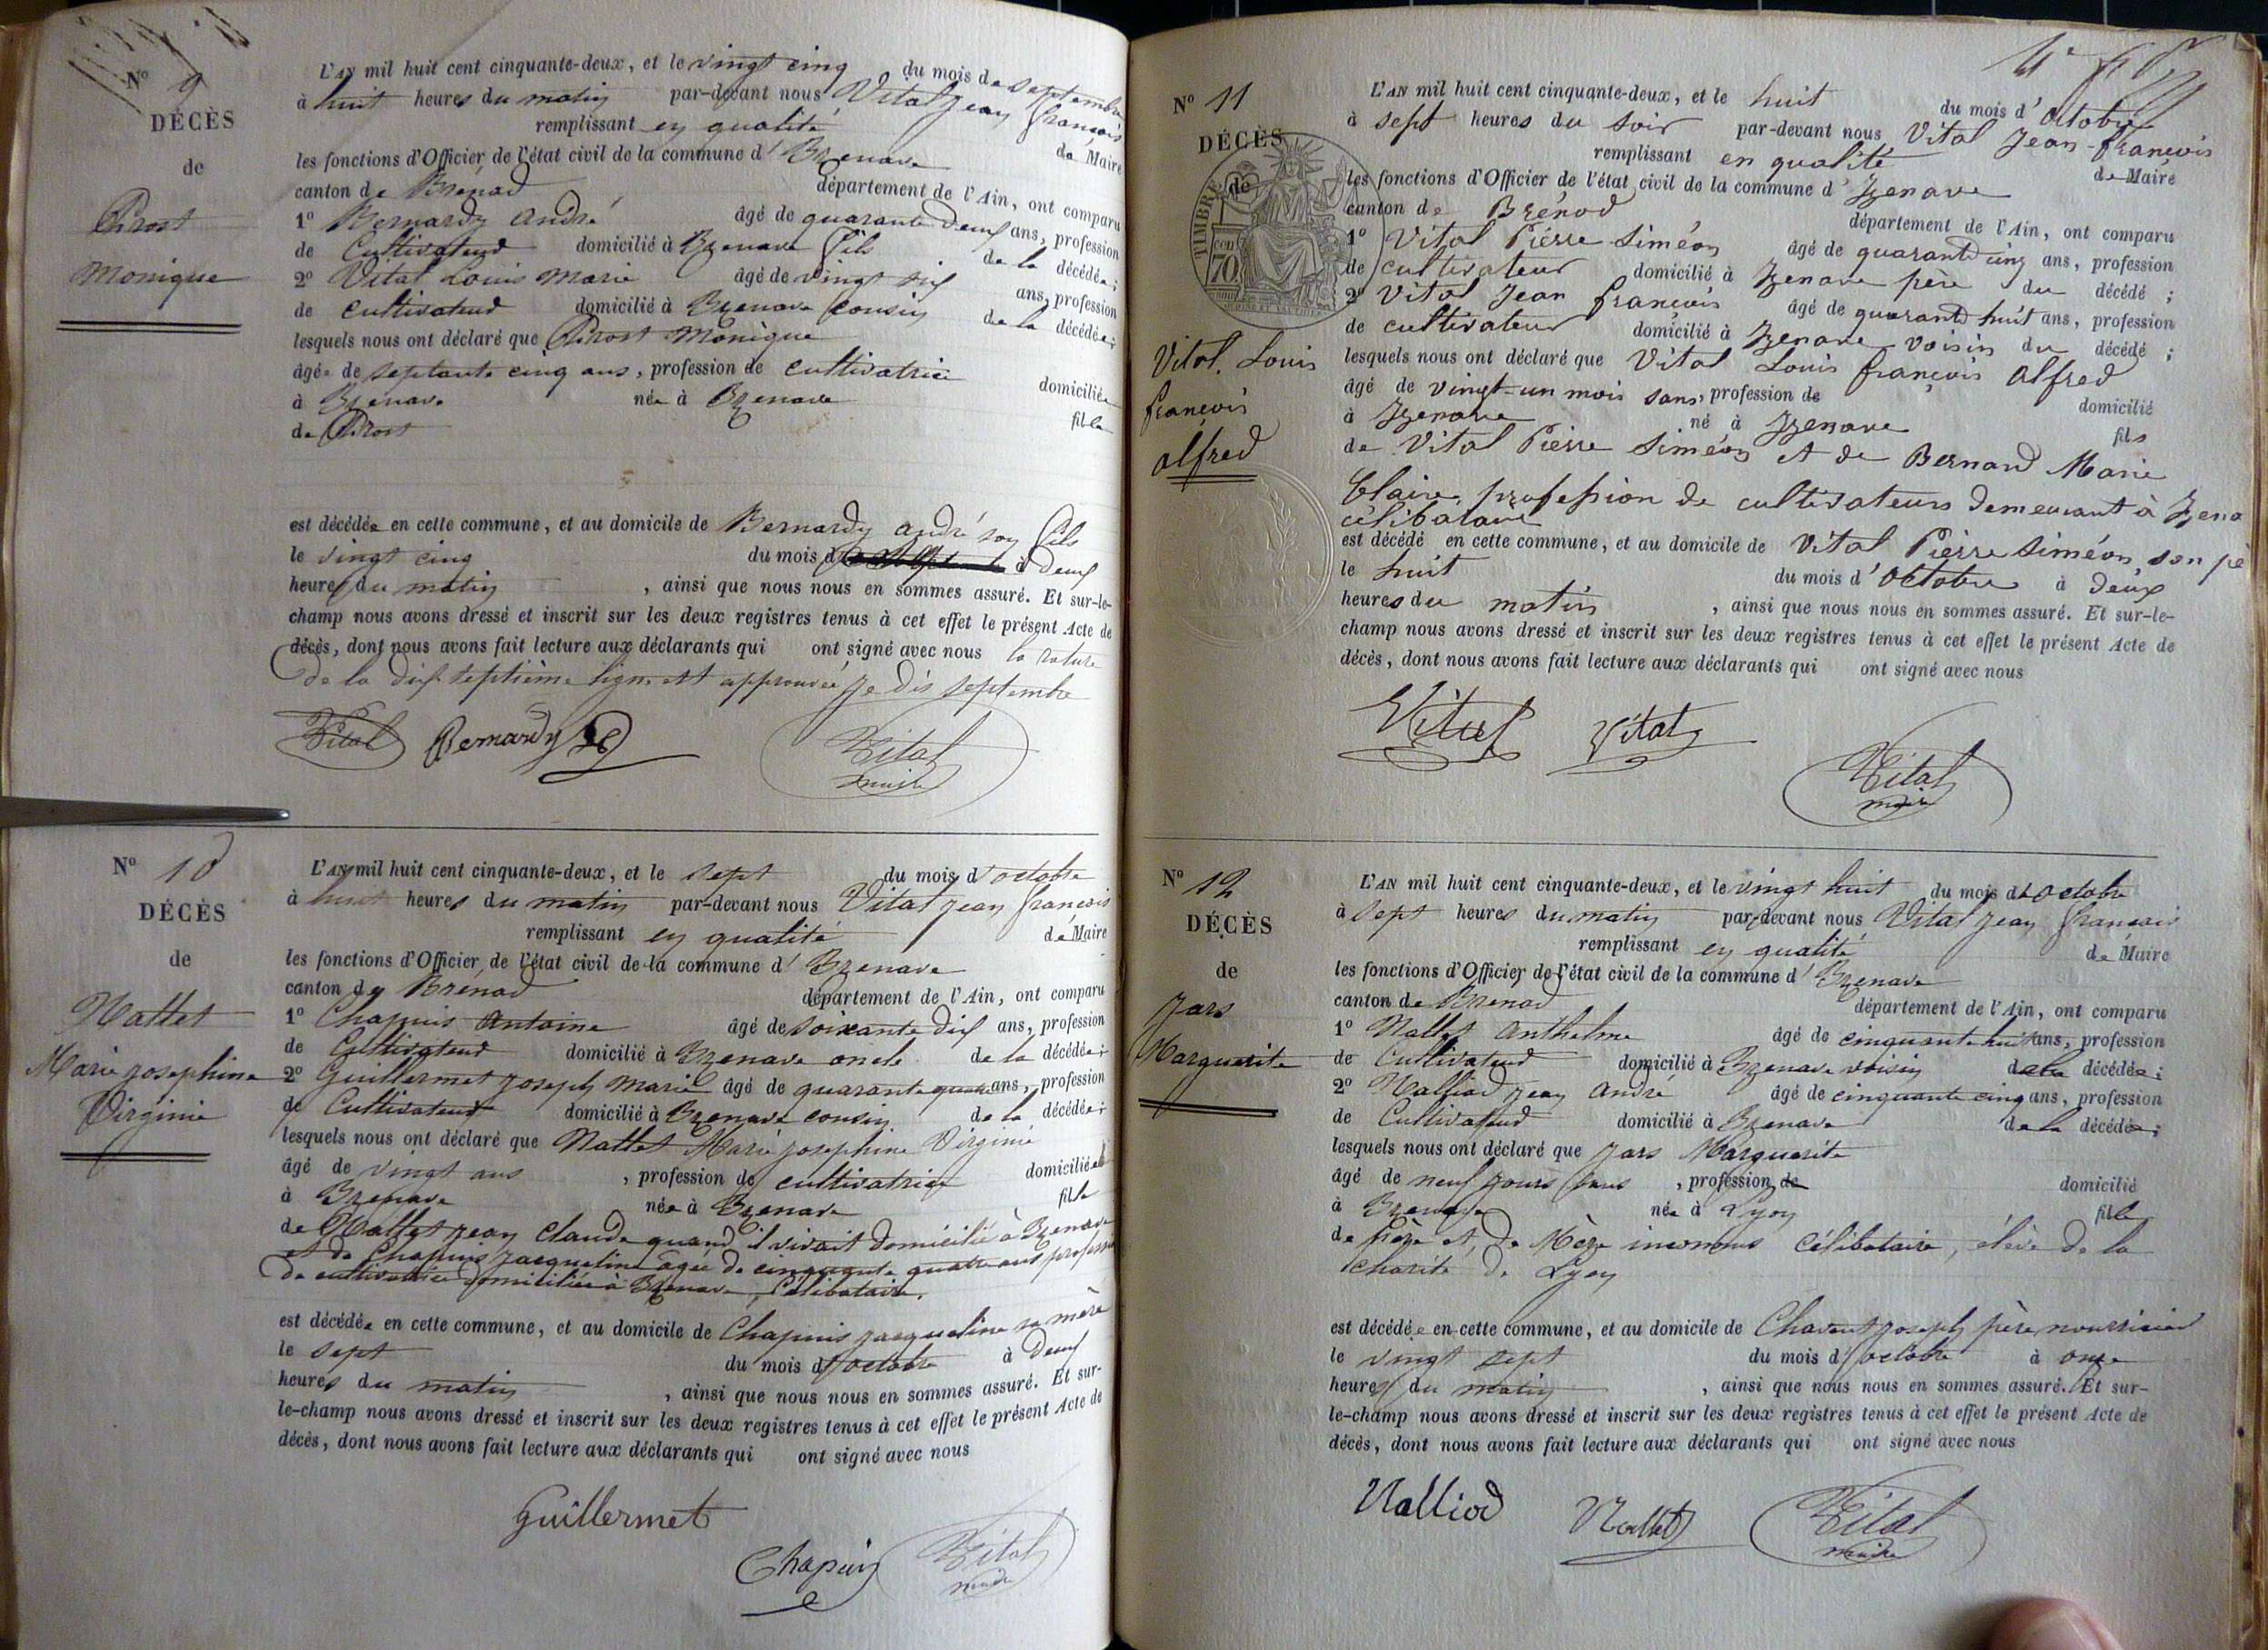 Nº 9
DÉCÈS
de
Prost
Monique
L'AN mil huit cent cinquante-deux, et le vingt cinq du mois de septembre
à huit heures du matin par-devant nous Vital Jean françois
remplissant en qualité de Maire
les fonctions d'Officier de l'état civil de la commune d' Izenave
canton de Brénod département de l'Ain, ont comparu
1º Bernardy André âgé de quarante deux ans, profession
de Cultivateur domicilié à Izenave fils de la décédée;
2º Vital Louis Marie âgé de vingt six ans, profession
de cultivateur domicilié à Izenave cousin de la décédée;
lesquels nous ont déclaré que Prost Monique
âgée de septante cinq ans, profession de cultivatrice domiciliée
à Izenave née à Izenave fille
de Prost
est décédée en cette commune, et au domicile de Bernardy André son fils
le vingt cinq du mois d à deux
heures du matin, ainsi que nous nous en sommes assuré. Et sur-le-
champ nous avons dressé et inscrit sur les deux registres tenus à cet effet le présent Acte de
décès, dont nous avons fait lecture aux déclarants qui ont signé avec nous la rature
de la dix septième ligne est approuvée je dis septembre
Vital Bernardy Vital
maire
Nº 10
DÉCÈS
de
Nallet
Marie josephine
Virginie
L'AN mil huit cent cinquante-deux, et le sept du mois d'octobre
à huit heures du matin par-devant nous Vital Jean françois
remplissant en qualité de Maire
les fonctions d'Officier de l'état civil de la commune d' Izenave
canton de Brénod département de l'Ain, ont comparu
1º Chapuis Antoine âgé de soixante dix ans, profession
de Cultivateur domicilié à Izenave oncle de la décédée;
2º Guillermet Joseph Marie âgé de quarante ans, profession
de Cultivateur domicilié à Izenave cousin de la décédée;
lesquels nous ont déclaré que Nallet Marie josephine Virginie
âgé de vingt ans, profession de cultivatrice domiciliée
à Izenave née à Izenave fille
de Nallet jean Claude quand il vivait domicilié à Izenave
et de Chapuis jacqueline âgée de cinquante quatre ans profession
de cultivatrice domiciliée à Izenave, Célibataire.
est décédée en cette commune, et au domicile de Chapuis jacqueline sa mère
le sept du mois d'octobre à deux
heures du matin, ainsi que nous nous en sommes assuré. Et sur-
le-champ nous avons dressé et inscrit sur les deux registres tenus à cet effet le présent Acte de
décès, dont nous avons fait lecture aux déclarants qui ont signé avec nous
Guillermet
Chapuis Vital
maire
Nº 11
DÉCÈS
de
TIMBRE
70
Vital Louis
françois
Alfred
L'AN mil huit cent cinquante-deux, et le huit du mois d'Octobre
à sept heures du soir par-devant nous Vital Jean-françois
remplissant en qualité de Maire
les fonctions d'Officier de l'état civil de la commune d'Izenave
canton de Brénod département de l'Ain, ont comparu
1º Vital Pierre Siméon âgé de quarante cinq ans, profession
de cultivateur domicilié à Izenave père du décédé;
2º Vital Jean françois âgé de quarante huit ans, profession
de cultivateur domicilié à Izenave voisin du décédé;
lesquels nous ont déclaré que Vital Louis françois Alfred
âgé de vingt-un mois sans, profession de domicilié
à Izenave né à Izenave fils
de Vital Pierre Siméon et de Bernard Marie
Claire, profession de cultivateurs demeurant à Izena
célibataire
est décédé en cette commune, et au domicile de Vital Pierre Siméon, son pè
le huit du mois d'Octobre à Deux
heures du matin, ainsi que nous nous en sommes assuré. Et sur-le-
champ nous avons dressé et inscrit sur les deux registres tenus à cet effet le présent Acte de
décès, dont nous avons fait lecture aux déclarants qui ont signé avec nous
Vital Vital
Vital
maire
Nº 12
DÉCÈS
de
Jars
Marguerite
L'AN mil huit cent cinquante-deux, et le vingt huit du mois d'octobre
à sept heures du matin par-devant nous Vital Jean françois
remplissant en qualité de Maire
les fonctions d'Officier de l'état civil de la commune d'Izenave
canton de Brénod département de l'Ain, ont comparu
1º Nallet Anthelme âgé de cinquante huit ans, profession
de Cultivateur domicilié à Izenave voisin de la décédée;
2º Nalliod Jean André âgé de cinquante cinq ans, profession
de Cultivateur domicilié à Izenave de la décédée;
lesquels nous ont déclaré que Jars Marguerite
âgé de neuf jours sans, profession de domicilié
à Izenave née à Lyon fille
de père et de Mère inconnus Célibataire, élève de la
charité de Lyon
est décédée en cette commune, et au domicile de Chavent Joseph père nourricier
le vingt sept du mois d'octobre à onze
heures du matin, ainsi que nous nous en sommes assuré. Et sur-
le-champ nous avons dressé et inscrit sur les deux registres tenus à cet effet le présent Acte de
décès, dont nous avons fait lecture aux déclarants qui ont signé avec nous
Nalliod Nallet Vital
maire